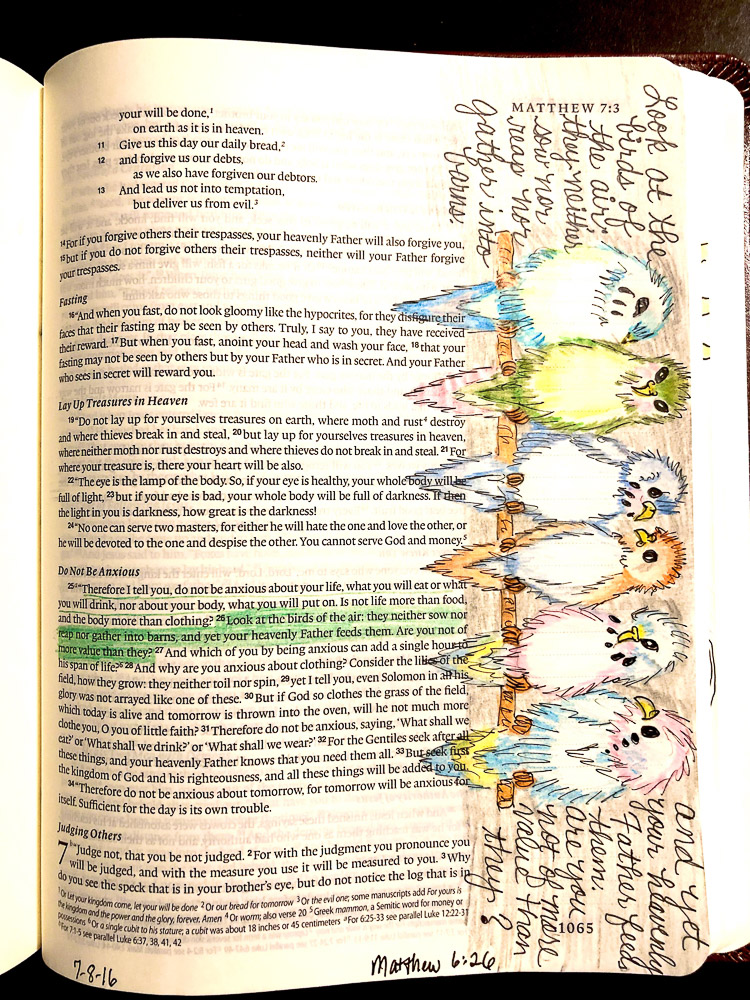 MATTHEW 7:3
your will be done,¹
on earth as it is in heaven.
11 Give us this day our daily bread,²
12 and forgive us our debts,
as we also have forgiven our debtors.
13 And lead us not into temptation,
but deliver us from evil.³
¹⁴For if you forgive others their trespasses, your heavenly Father will also forgive you,
¹⁵but if you do not forgive others their trespasses, neither will your Father forgive
your trespasses.
Fasting
¹⁶“And when you fast, do not look gloomy like the hypocrites, for they disfigure their
faces that their fasting may be seen by others. Truly, I say to you, they have received
their reward. ¹⁷But when you fast, anoint your head and wash your face, ¹⁸that your
fasting may not be seen by others but by your Father who is in secret. And your Father
who sees in secret will reward you.
Lay Up Treasures in Heaven
¹⁹“Do not lay up for yourselves treasures on earth, where moth and rust⁴ destroy
and where thieves break in and steal, ²⁰but lay up for yourselves treasures in heaven,
where neither moth nor rust destroys and where thieves do not break in and steal. ²¹For
where your treasure is, there your heart will be also.
²²“The eye is the lamp of the body. So, if your eye is healthy, your whole body will be
full of light, ²³but if your eye is bad, your whole body will be full of darkness. If then
the light in you is darkness, how great is the darkness!
²⁴“No one can serve two masters, for either he will hate the one and love the other, or
he will be devoted to the one and despise the other. You cannot serve God and money.⁵
Do Not Be Anxious
²⁵“Therefore I tell you, do not be anxious about your life, what you will eat or what
you will drink, nor about your body, what you will put on. Is not life more than food,
and the body more than clothing? ²⁶Look at the birds of the air: they neither sow nor
reap nor gather into barns, and yet your heavenly Father feeds them. Are you not of
more value than they? ²⁷And which of you by being anxious can add a single hour to
his span of life?⁶ ²⁸And why are you anxious about clothing? Consider the lilies of the
field, how they grow: they neither toil nor spin, ²⁹yet I tell you, even Solomon in all his
glory was not arrayed like one of these. ³⁰But if God so clothes the grass of the field,
which today is alive and tomorrow is thrown into the oven, will he not much more
clothe you, O you of little faith? ³¹Therefore do not be anxious, saying, ‘What shall we
eat?’ or ‘What shall we drink?’ or ‘What shall we wear?’ ³²For the Gentiles seek after all
these things, and your heavenly Father knows that you need them all. ³³But seek first
the kingdom of God and his righteousness, and all these things will be added to you.
³⁴“Therefore do not be anxious about tomorrow, for tomorrow will be anxious for
itself. Sufficient for the day is its own trouble.
Judging Others
7 “Judge not, that you be not judged. ²For with the judgment you pronounce you
will be judged, and with the measure you use it will be measured to you. ³Why
do you see the speck that is in your brother’s eye, but do not notice the log that is in
¹ Or Let your kingdom come, let your will be done ² Or our bread for tomorrow ³ Or the evil one; some manuscripts add For yours is
the kingdom and the power and the glory, forever. Amen ⁴ Or worm; also verse 20 ⁵ Greek mammon, a Semitic word for money or
possessions ⁶ Or a single cubit to his stature; a cubit was about 18 inches or 45 centimeters For 6:25-33 see parallel Luke 12:22-31
For 7:1-5 see parallel Luke 6:37, 38, 41, 42
Look at the
birds of
the air:
they neither
sow nor
reap nor
gather into
barns.
and yet
your heavenly
Father feeds
them.
are you
not of more
value than
they?
1065
7-8-16
Matthew 6:26